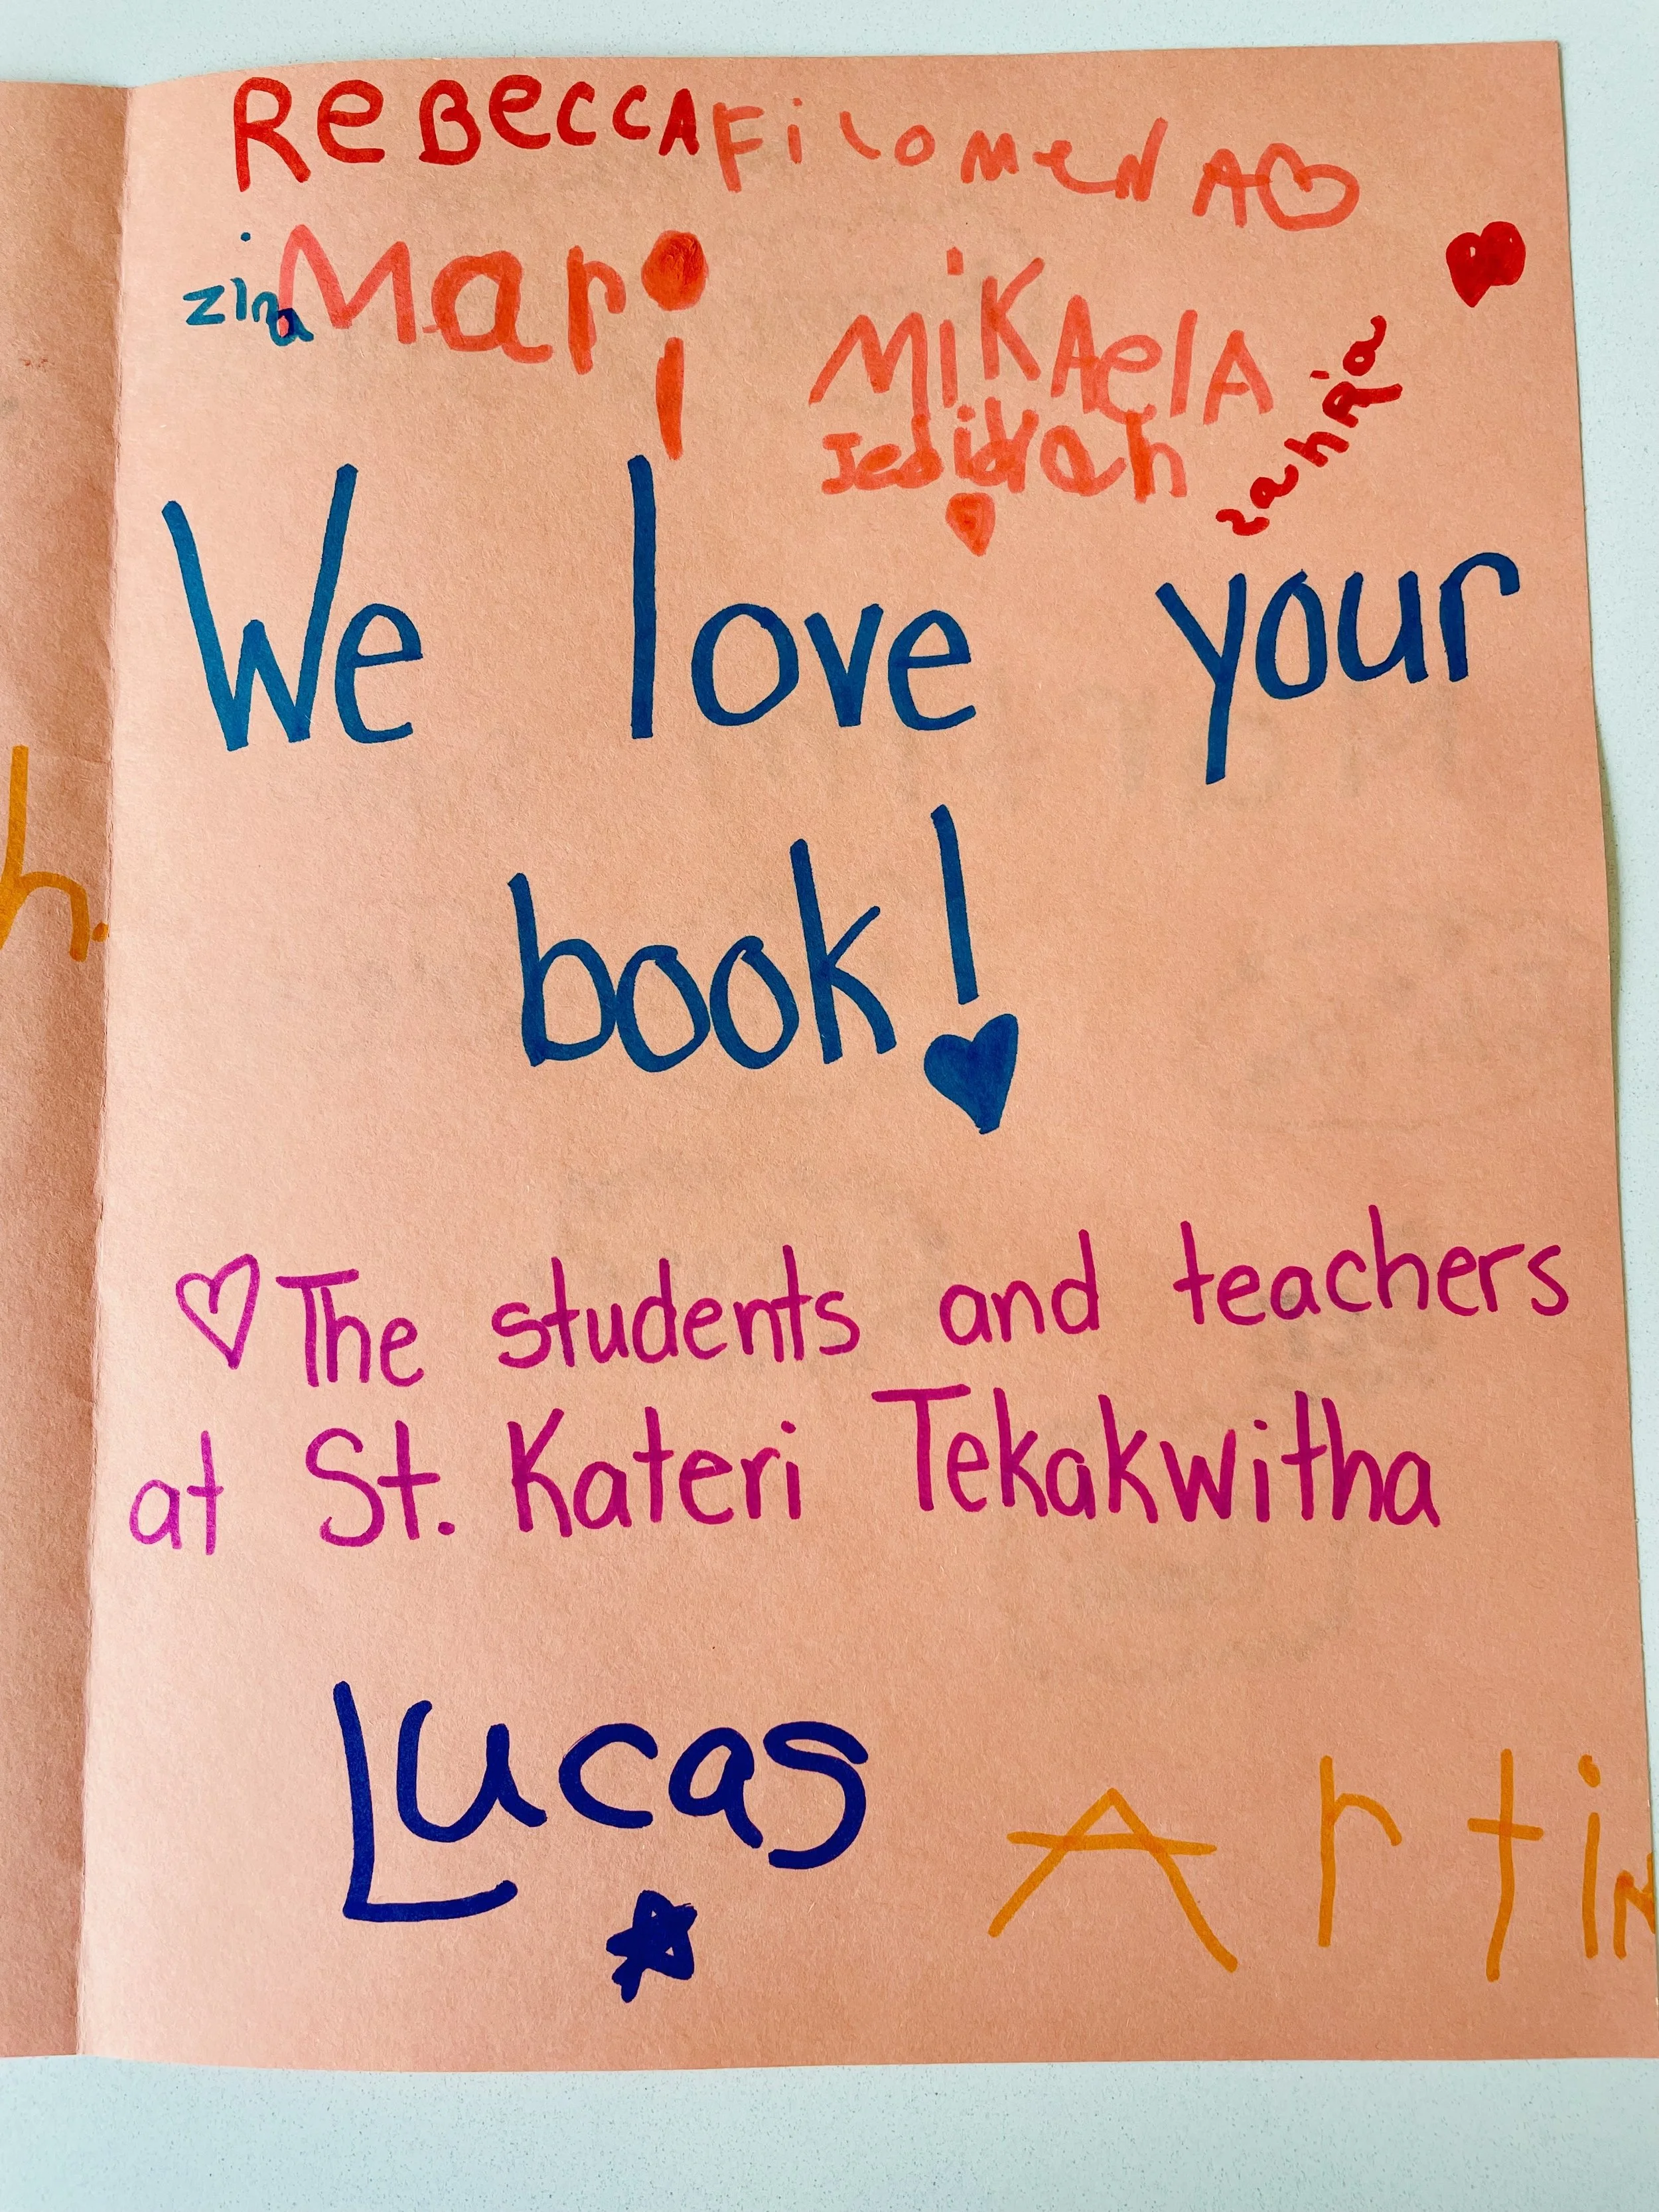 ReBeccA FilomeNA
zina Mari
MiKAelA
Jedidah
zahria
We love your
book!
The students and teachers
at St. Kateri Tekakwitha
Lucas
Artin
h.